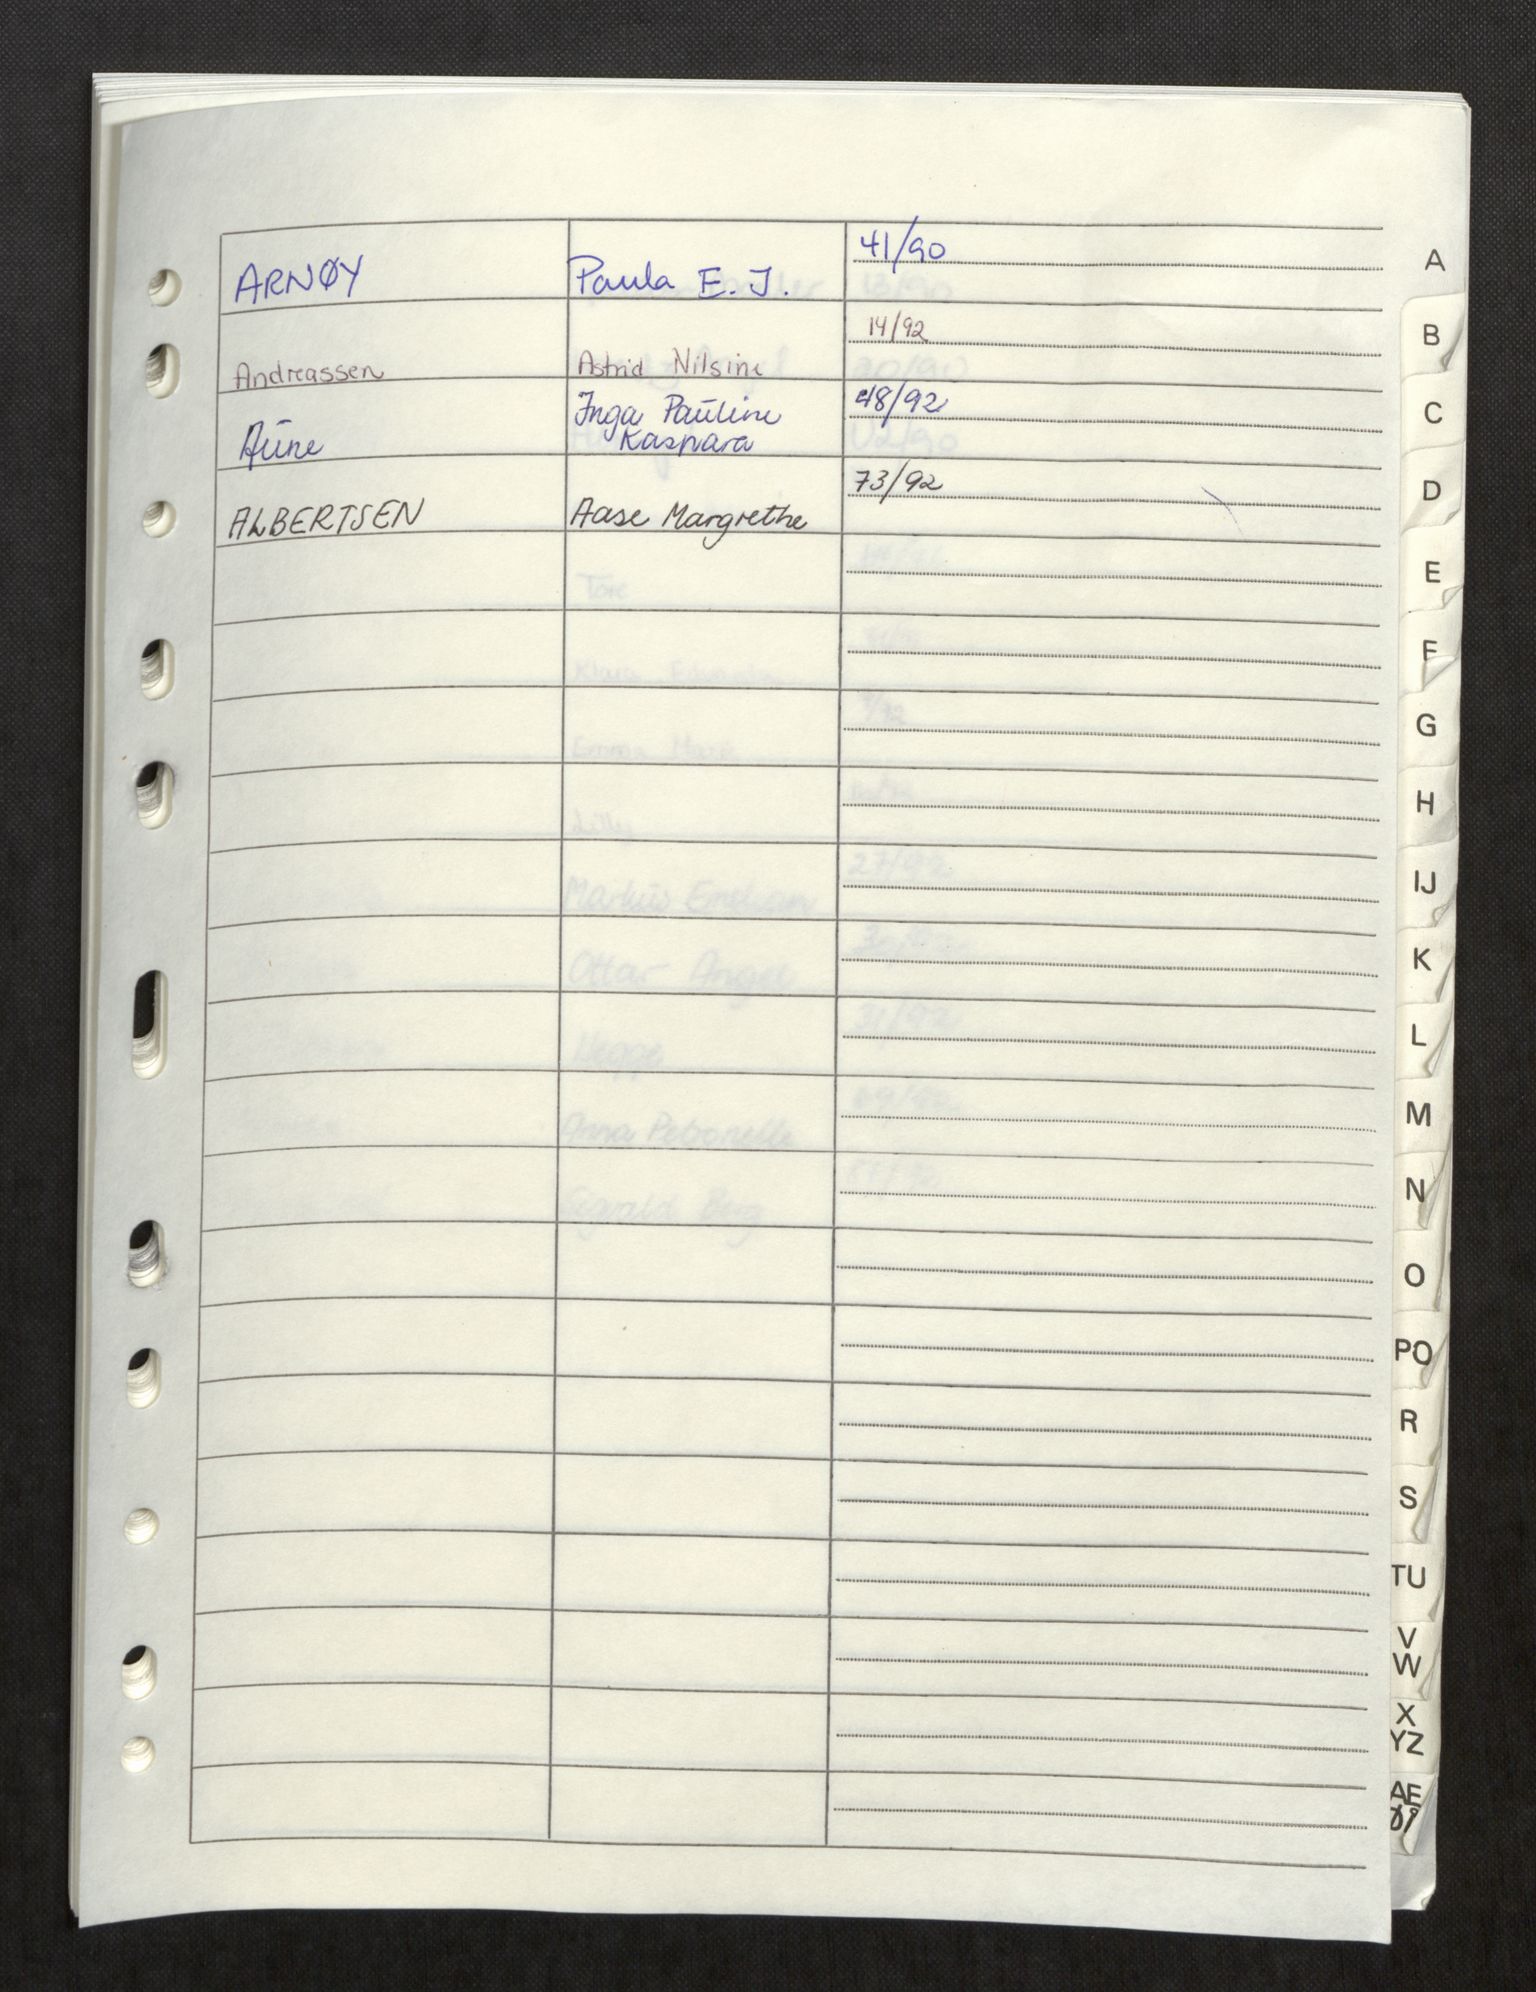 41/90
ARNØY Paula E. J.
14/92
Andreassen Astrid Nilsine
48/92
Inga Pauline
Aune Kaspara
73/92
ALBERTSEN Aase Margrethe
A
B
C
D
E
F
G
H
IJ
K
L
M
N
O
PQ
R
S
TU
V
W
X
YZ